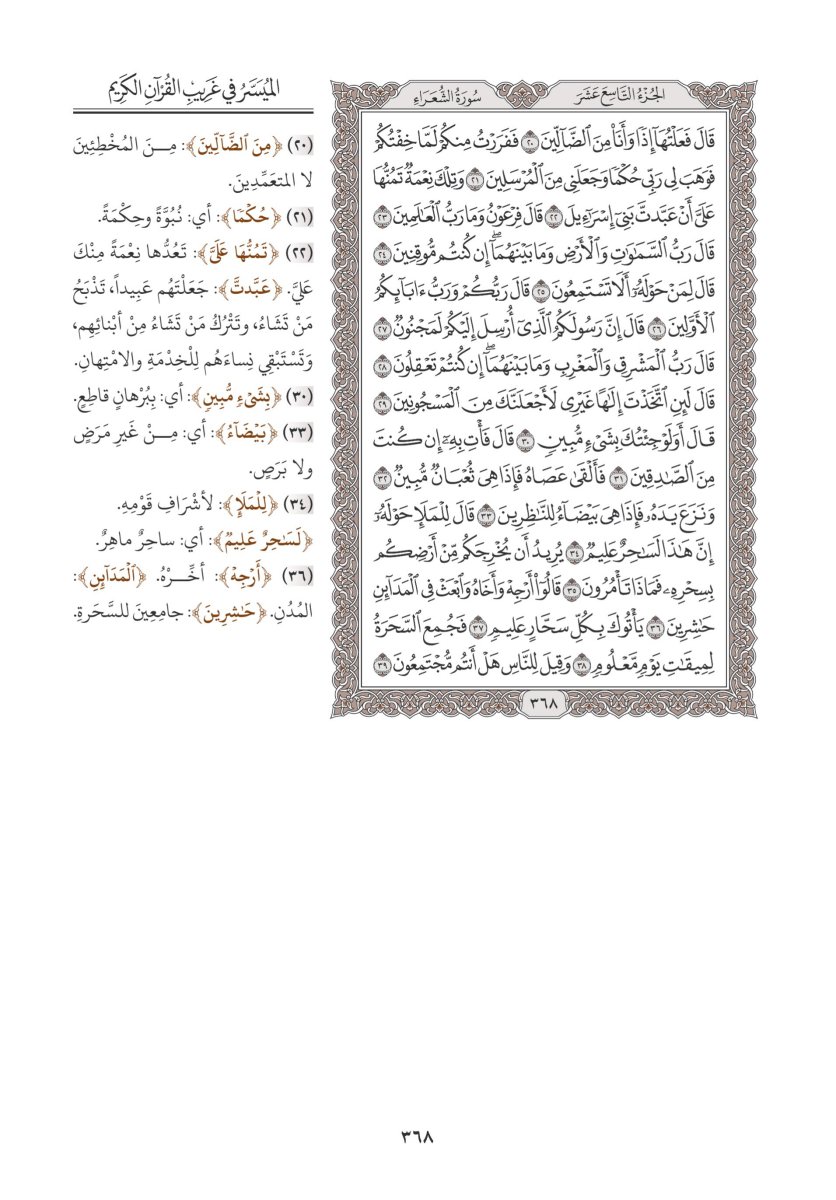 الجُزْءُ التَّاسِعَ عَشَرَ
سُورَةُ الشُّعَرَاءِ
قَالَ فَعَلْتُهَآ إِذًا وَأَنَا۠ مِنَ ٱلضَّآلِّينَ ٢٠ فَفَرَرْتُ مِنكُمْ لَمَّا خِفْتُكُمْ
فَوَهَبَ لِى رَبِّى حُكْمًا وَجَعَلَنِى مِنَ ٱلْمُرْسَلِينَ ٢١ وَتِلْكَ نِعْمَةٌ تَمُنُّهَا
عَلَىَّ أَنْ عَبَّدتَّ بَنِىٓ إِسْرَٰٓءِيلَ ٢٢ قَالَ فِرْعَوْنُ وَمَا رَبُّ ٱلْعَٰلَمِينَ ٢٣
قَالَ رَبُّ ٱلسَّمَٰوَٰتِ وَٱلْأَرْضِ وَمَا بَيْنَهُمَآ ۖ إِن كُنتُم مُّوقِنِينَ ٢٤
قَالَ لِمَنْ حَوْلَهُۥٓ أَلَا تَسْتَمِعُونَ ٢٥ قَالَ رَبُّكُمْ وَرَبُّ ءَابَآئِكُمُ
ٱلْأَوَّلِينَ ٢٦ قَالَ إِنَّ رَسُولَكُمُ ٱلَّذِىٓ أُرْسِلَ إِلَيْكُمْ لَمَجْنُونٌ ٢٧
قَالَ رَبُّ ٱلْمَشْرِقِ وَٱلْمَغْرِبِ وَمَا بَيْنَهُمَآ ۖ إِن كُنتُمْ تَعْقِلُونَ ٢٨
قَالَ لَئِنِ ٱتَّخَذْتَ إِلَٰهًا غَيْرِى لَأَجْعَلَنَّكَ مِنَ ٱلْمَسْجُونِينَ ٢٩
قَالَ أَوَلَوْ جِئْتُكَ بِشَىْءٍ مُّبِينٍ ٣٠ قَالَ فَأْتِ بِهِۦٓ إِن كُنتَ
مِنَ ٱلصَّٰدِقِينَ ٣١ فَأَلْقَىٰ عَصَاهُ فَإِذَا هِىَ ثُعْبَانٌ مُّبِينٌ ٣٢
وَنَزَعَ يَدَهُۥ فَإِذَا هِىَ بَيْضَآءُ لِلنَّٰظِرِينَ ٣٣ قَالَ لِلْمَلَإِ حَوْلَهُۥٓ
إِنَّ هَٰذَا لَسَٰحِرٌ عَلِيمٌ ٣٤ يُرِيدُ أَن يُخْرِجَكُم مِّنْ أَرْضِكُم
بِسِحْرِهِۦ فَمَاذَا تَأْمُرُونَ ٣٥ قَالُوٓا۟ أَرْجِهْ وَأَخَاهُ وَٱبْعَثْ فِى ٱلْمَدَآئِنِ
حَٰشِرِينَ ٣٦ يَأْتُوكَ بِكُلِّ سَحَّارٍ عَلِيمٍ ٣٧ فَجُمِعَ ٱلسَّحَرَةُ
لِمِيقَٰتِ يَوْمٍ مَّعْلُومٍ ٣٨ وَقِيلَ لِلنَّاسِ هَلْ أَنتُم مُّجْتَمِعُونَ ٣٩
٣٦٨
المُيَسَّرُ في غَرِيبِ القُرْآنِ الكَرِيمِ
(٢٠) ﴿مِنَ ٱلضَّآلِّينَ﴾: مِـنَ المُخْطِئِينَ
لا المتعَمِّدِينَ.
(٢١) ﴿حُكْمًا﴾: أي: نُبُوَّةً وحِكْمَةً.
(٢٢) ﴿تَمُنُّهَا عَلَىَّ﴾: تَعُدُّها نِعْمَةً مِنْكَ
عَلَيَّ. ﴿عَبَّدتَّ﴾: جَعَلْتَهُم عَبِيداً، تَذْبَحُ
مَنْ تَشَاءُ، وتَتْرُكُ مَنْ تَشَاءُ مِنْ أبْنائِهِم،
وَتَسْتَبْقِي نِساءَهُم لِلْخِدْمَةِ والامْتِهانِ.
(٣٠) ﴿بِشَىْءٍ مُّبِينٍ﴾: أي: بِبُرْهانٍ قاطِعٍ.
(٣٣) ﴿بَيْضَآءُ﴾: أي: مِـنْ غَيرِ مَرَضٍ
ولا بَرَصٍ.
(٣٤) ﴿لِلْمَلَإِ﴾: لأشْرَافِ قَوْمِهِ.
﴿لَسَٰحِرٌ عَلِيمٌ﴾: أي: ساحِرٌ ماهِرٌ.
(٣٦) ﴿أَرْجِهْ﴾: أخِّـرْهُ. ﴿ٱلْمَدَآئِنِ﴾:
المُدُنِ. ﴿حَٰشِرِينَ﴾: جامِعِينَ للسَّحَرَةِ.
٣٦٨